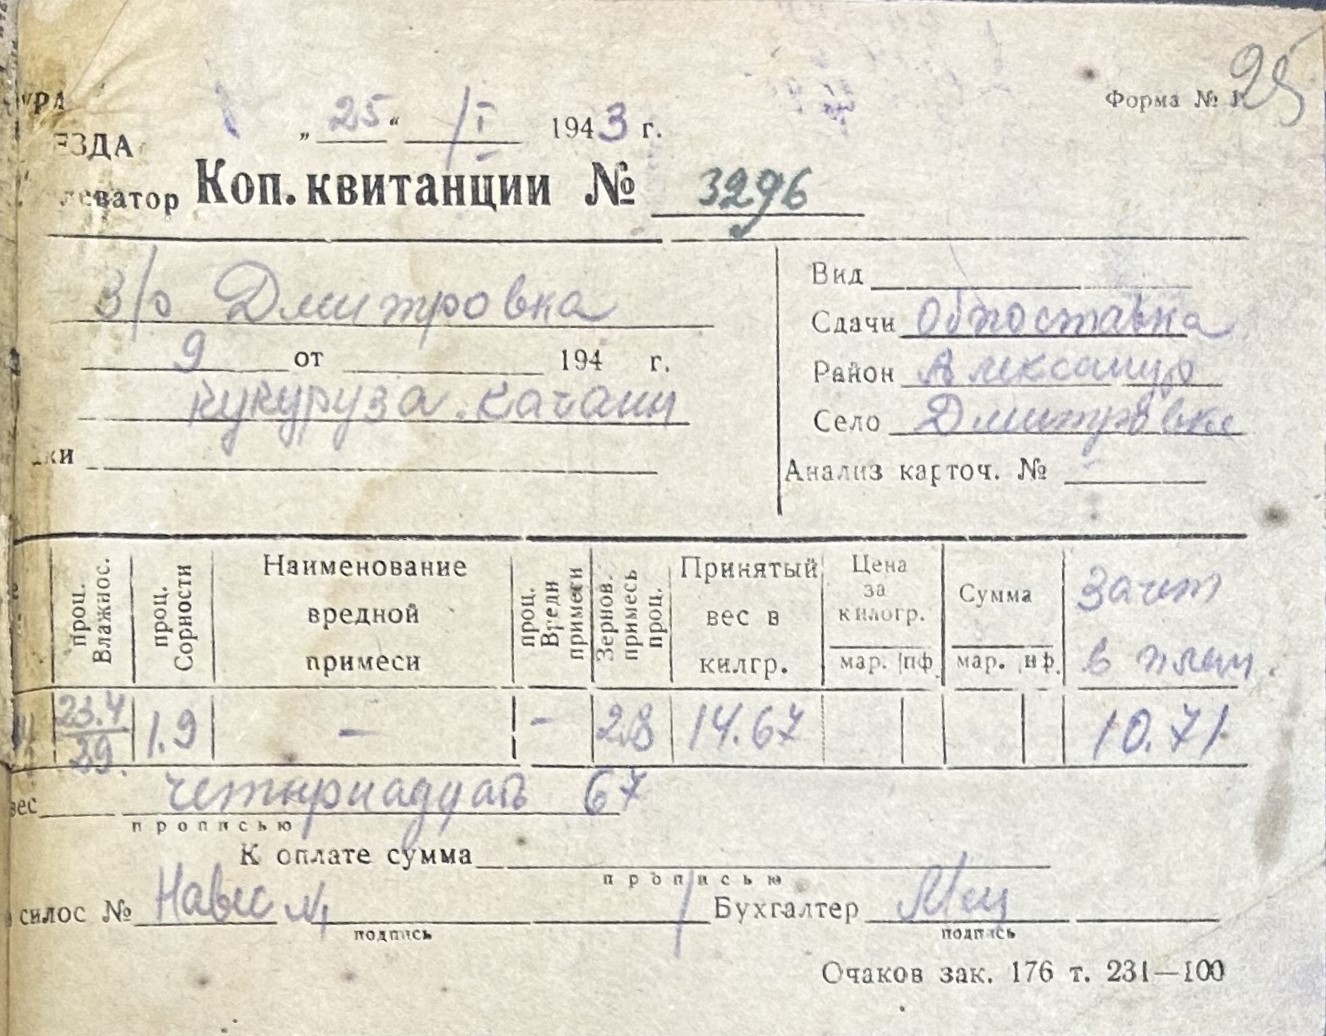 25
УРА
„ 25 “ / I 1943 г.
Форма № 1
ЕЗДА
леватор Коп. квитанции № 3296
З/о Дмитровка
Вид
Сдачи Обпоставка
9 от 194 г.
Район Александр
кукуруза. качани
Село Дмитровка
ки
Анализ карточ. №
проц. Влажнос.
проц. Сорности
Наименование вредной примеси
проц. Вредн примеси
Зернов. примесь проц.
Принятый вес в килгр.
Цена за килогр.
мар. пф
Сумма
мар. пф.
Зачет в план.
23.4 / 39. 1.9 — - 2.8 14.67 10.71
вес четырнадцать 67
прописью
К оплате сумма
прописью
силос № Навес №1
Бухгалтер
подпись подпись
Очаков зак. 176 т. 231—100